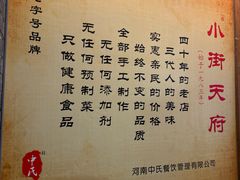 小街天府
(始于一九八三年)
四十年的老店
三代人的美味
实惠亲民的价格
始终不变的品质
全部手工制作
无任何添加剂
无任何预制菜
只做健康食品
老字号品牌
中氏
河南中氏餐饮管理有限公司